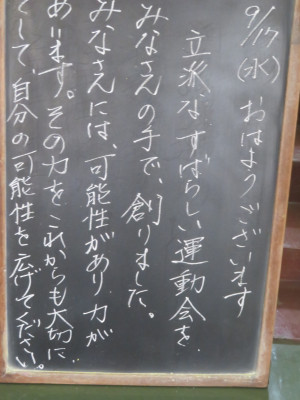 9/17(水) おはようございます
立派なすばらしい運動会を
みなさんの手で、創りました。
みなさんには、可能性があり力が
あります。その力をこれからも大切に
して、自分の可能性を広げてください。